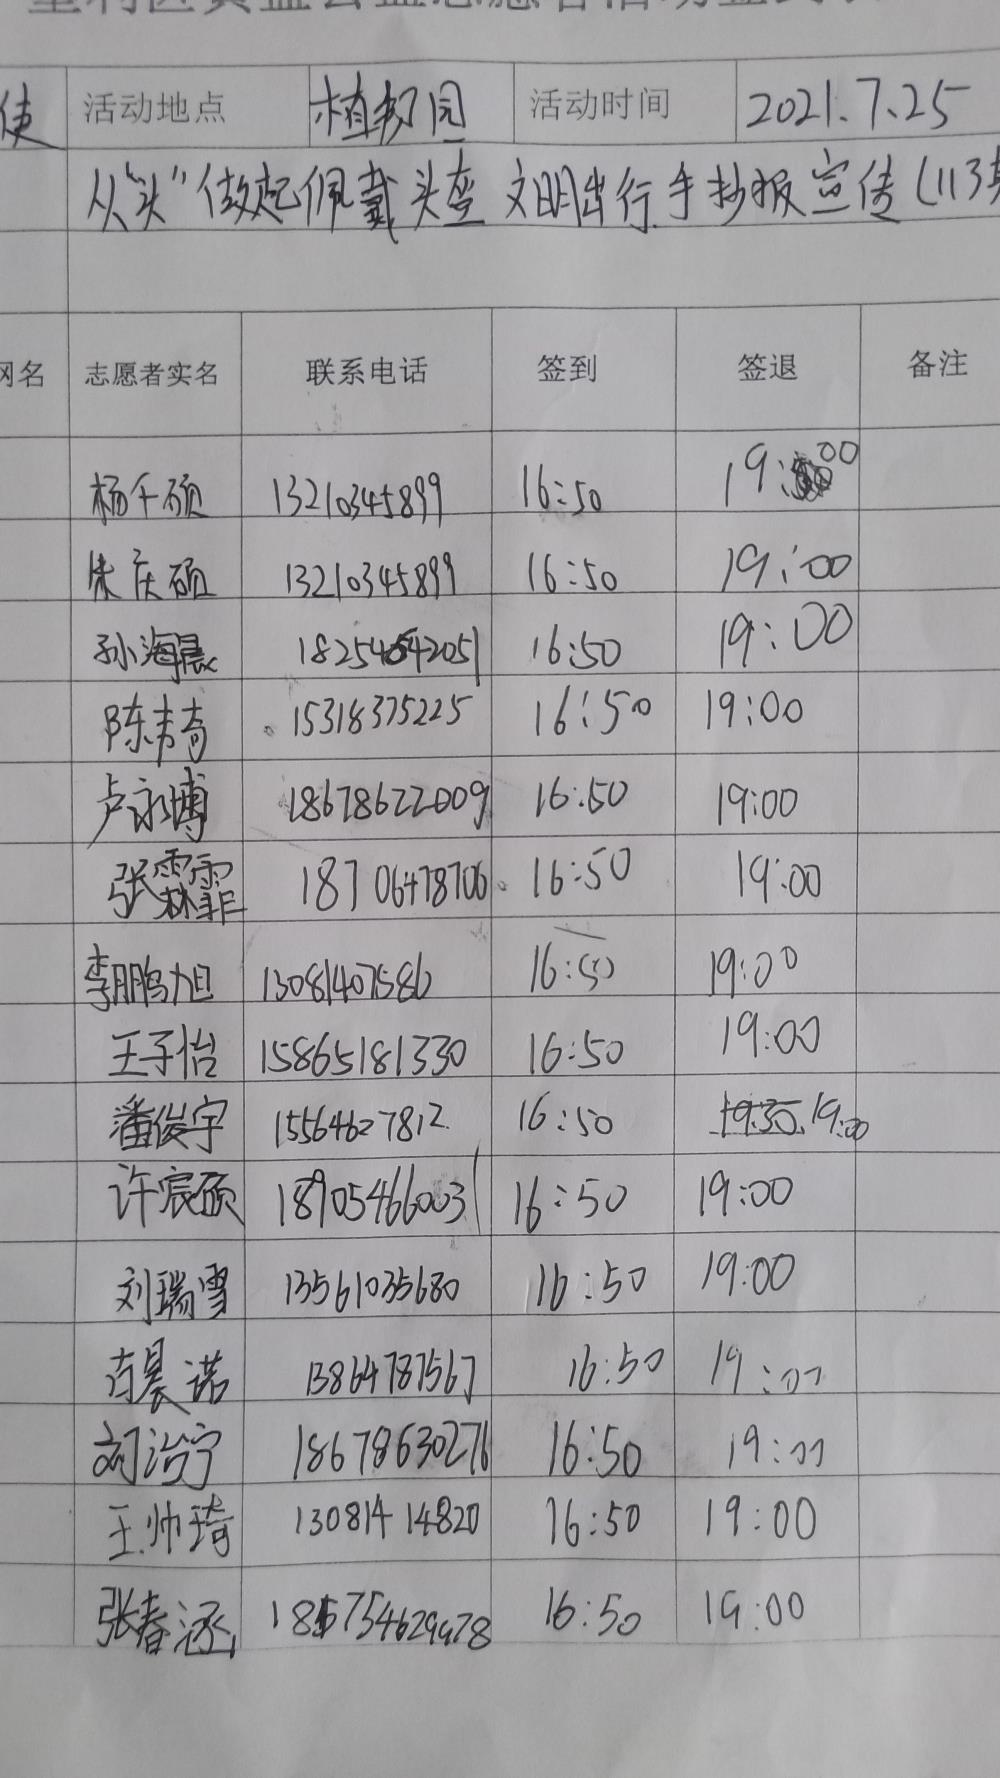 垦利区黄蓝公益志愿者活动签到表
使 活动地点 植物园 活动时间 2021.7.25
从"头"做起佩戴头盔 文明出行手抄报宣传(113期
网名 志愿者实名 联系电话 签到 签退 备注
杨千硕 13210345899 16:50 19:00
朱庆硕 13210345899 16:50 19:00
孙海晨 16:50 19:00
陈韦奇 15318375225 16:50 19:00
卢永博 18678622009 16:50 19:00
张霖霏 18706478706 16:50 19:00
李鹏旭 13081407586 16:50 19:00
王子怡 15865181330 16:50 19:00
潘俊宇 15564627812 16:50 19:30 19:00
许宸硕 18905466003 16:50 19:00
刘瑞雪 13561035680 16:50 19:00
晨诺 13864787567 16:50 19:00
刘治宁 18678630276 16:50 19:00
王帅琦 13081414820 16:50 19:00
张春涵 16:50 19:00